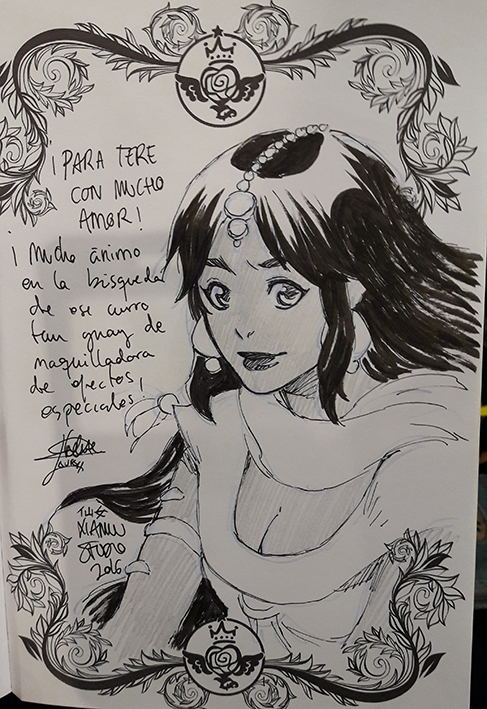 ¡PARA TERE
CON MUCHO
AMOR!
¡Mucho ánimo
en la búsqueda
de ese curro
tan guay de
maquilladora
de efectos
especiales!
XIAN NU
STUDIO
2016